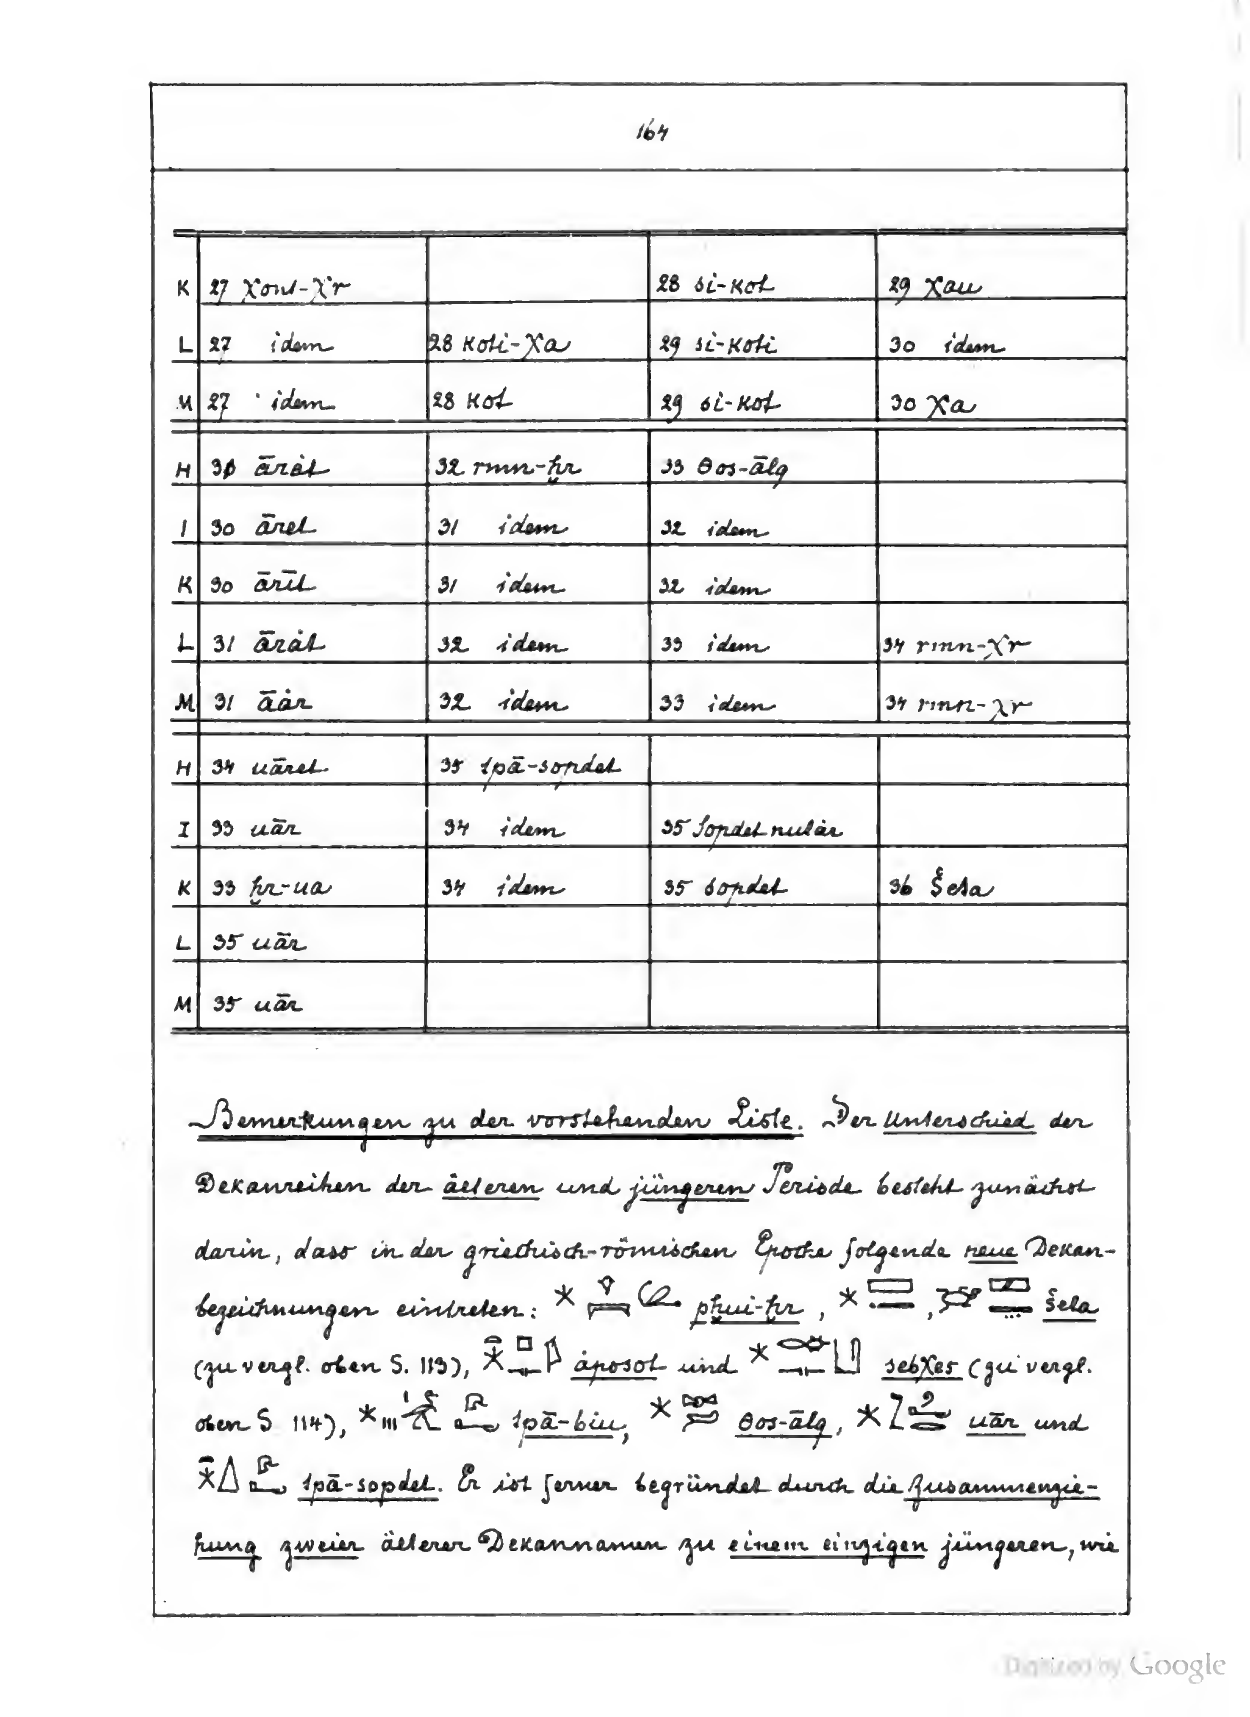 164
K 27 χont-χr 28 si-kot 29 χau
L 27 idem 28 koti-χa 29 si-koti 30 idem
M 27 idem 28 kot 29 si-kot 30 χa
H ārȧt 32 rmn-ḥr 33 θos-ālq
I 30 āret 31 idem 32 idem
K 30 ārīt 31 idem 32 idem
L 31 ārȧt 32 idem 33 idem 34 rmn-χr
M 31 āȧr 32 idem 33 idem 34 rmn-χr
H 34 uāret 35 tpā-sopdet
I 33 uār 34 idem 35 Sopdet nutȧr
K 33 ḥr-ua 34 idem 35 sopdet 36 Šeta
L 35 uār
M 35 uār
Bemerkungen zu der vorstehenden Liste. Der Unterschied der
Dekanreihen der älteren und jüngeren Periode besteht zunächst
darin, dass in der griechisch-römischen Epoche folgende neue Dekan-
bezeichnungen eintreten: pḥui-ḥr, , šeta
(zu vergl. oben S. 113), ȧposot und sebχes (zu vergl.
oben S. 114), tpā-biu, θos-ālq, uār und
tpā-sopdet. Er ist ferner begründet durch die Zusammenzie-
hung zweier älterer Dekannamen zu einem einzigen jüngeren, wie
Digitized by Google